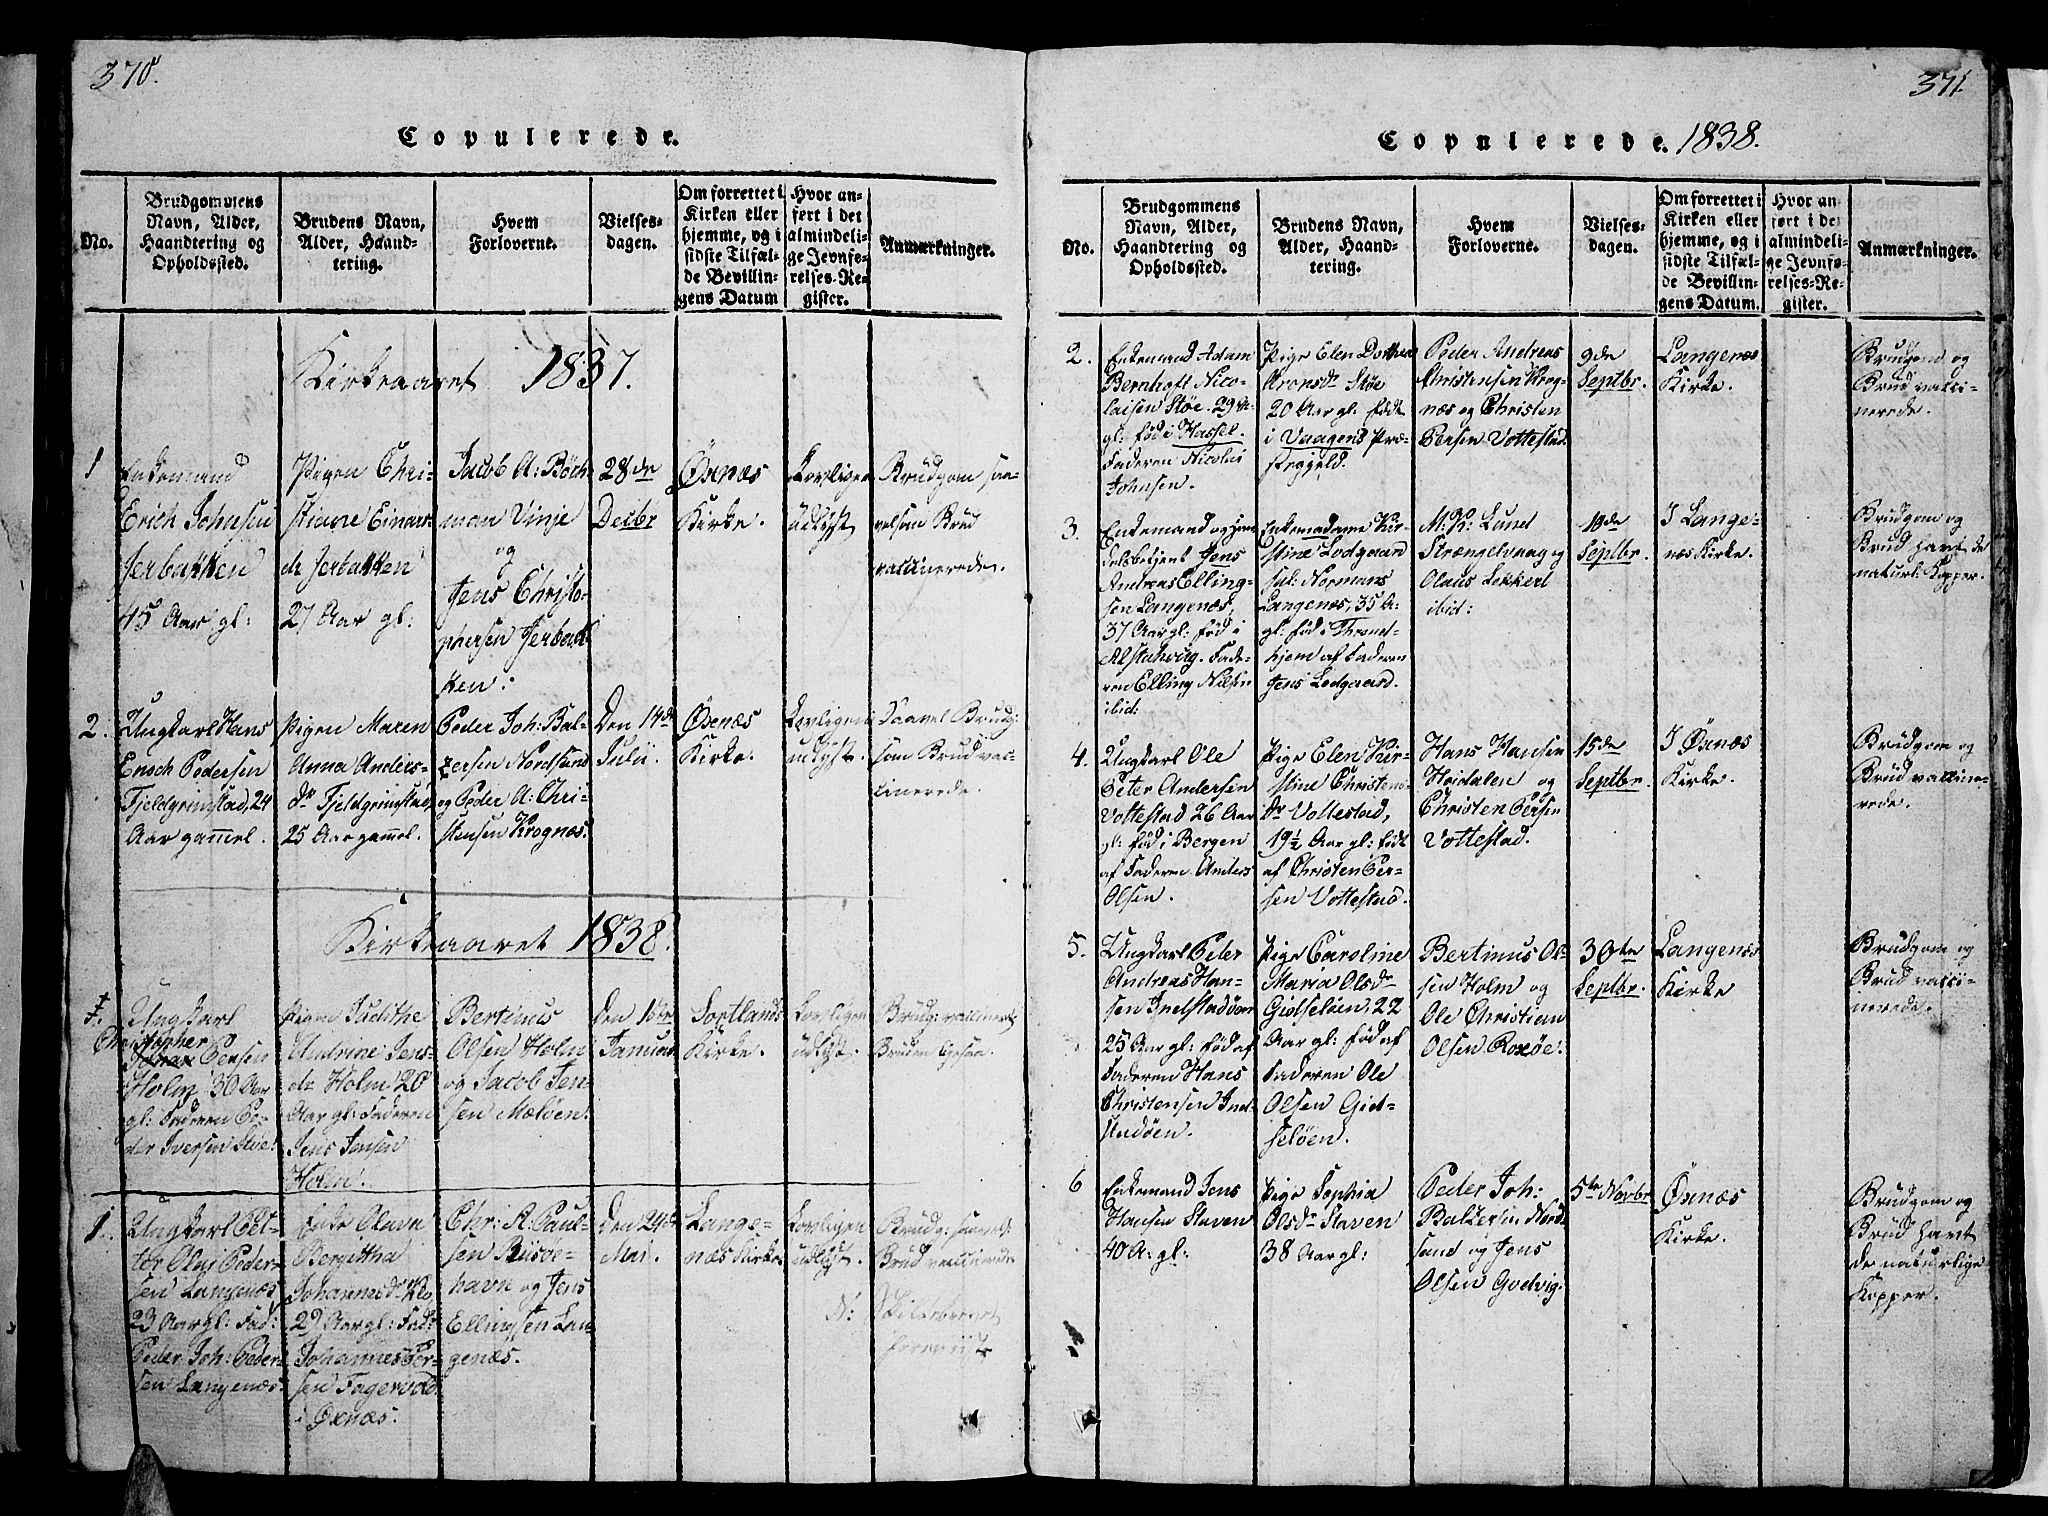 370.
Copulerede.
No.
Brudgommens
Navn, Alder,
Haandtering og
Opholdssted.
Brudens Navn,
Alder, Haand-
tering.
Hvem
Forloverne.
Vielses-
dagen.
Om forrettet i
Kirken eller
hjemme, og i
sidste Tilfæl-
de Bevillin-
gens Datum
Hvor an-
ført i det
almindeli-
ge Jevnfø-
relses-Re-
gister.
Anmærkninger.
Kirkeaaret 1837.
1
Enkemand
Erich Johnsen
Jerbakken
45 Aar gl:
Pigen Chri-
stiane Einars-
dr Jerbakken
27 Aar gl:
Jacob A: Böch-
man Vinje
og
Jens Christo-
phersen Jerbak-
ken:
28de
Decbr
Öxnæs
Kirke.
Lovligen
udlyst
Brudgom saa-
velsom Brud
vaccinerede.
2.
Ungkarl Hans
Enoch Pedersen
Fjeldgrimstad, 24
Aar gammel.
Pigen Maren
Anna Anders-
dr Fjeldgrimstad,
25 Aar gammel.
Peder Joh: Bal-
zersen Nordsand
og Peder A: Chri-
stensen Krognæs.
Den 14de
Julii
Öxnæs
Kirke.
Lovligen
udlyst.
Saavel Brudg:
som Brud vac-
cinerede.
Kirkeaaret 1838.
Ungkarl
Christopher
Persen
Holm 30 Aar
gl: Faderen Pe-
der Iversen
Pigen Judithe
Andrine Jens-
dr Holm 20
Aar gl: Faderen
Jens Jensen
Holm.
Bertinus
Olsen Holm
og Jacob Jen-
sen Maløen.
Den 16de
Januar
Sortlands
Kirke.
Lovligen
udlyst.
Brudg: vaccineret
Bruden
1.
Ungkarl Pet-
ter Olai Peder-
sen Langenæs
23 Aar gl: Fad:
Peder Joh: Peder-
sen Langenæs.
Enke Olava
Bergitha
Johannesdr
29 Aar gl: Fad:
Johannes Per-
sen Fagervold
i Öxnæs.
Chr: A. Paul-
sen Riisöe-
havn og Jens
Ellingsen Lan-
genæs.
Den 24de
Mai.
Lange-
næs Kirke
Lovligen
udlyst.
Brudg: saavel
Brud vaccinerede
N:
371.
Copulerede. 1838.
No.
Brudgommens
Navn, Alder,
Haandtering og
Opholdssted.
Brudens Navn,
Alder, Haand-
tering.
Hvem
Forloverne.
Vielses-
dagen.
Om forrettet i
Kirken eller
hjemme, og i
sidste Tilfæl-
de Bevillin-
gens Datum.
Hvor an-
ført i det
almindeli-
ge Jevnfø-
relses-Re-
gister.
Anmærkninger.
2.
Enkemand Adam
Bernhoft Nico-
laisen Støe. 29 A:
gl: fød i Hassel.
Faderen Nicolai
Johnsen.
Pige Elen Dorthea
Aronsdr Støe
20 Aar gl: född
i Vaagens Præ-
stegjeld.
Peder Andreas
Christensen Krog-
næs og Christen
Persen Vottestad.
9de
Septbr.
Langenæs
Kirke.
Brudgom og
Brud vacci-
nerede.
3.
Enkemand og Han-
delsbetjent Jens
Andreas Elling-
sen Langenæs,
37 Aar gl: fød i
Alstahoug. Fade-
ren Elling Nilsen
ibid:
Enkemadame Kir-
stine Lodgaard
sal: Normans
Langenæs, 35 A:
gl: fød i Thrond-
hjem af Faderen
Jens Lodgaard.
M: R: Lund
Strængelvaag og
Olaus Lekkert
ibid:
13de
Septbr.
I Lange-
næs Kirke.
Brudgom og
Brud havt de
naturl: Kopper.
4.
Ungkarl Ole
Peter Andersen
Vottestad 26 Aar
gl: fød i Bergen
af Faderen Anders
Olsen.
Pige Elen Kir-
stine Christens-
dr Vottestad,
19½ Aar gl: född
af Christen Per-
sen Vottestad.
Hans Hansen
Heidalen og
Christen Persen
Vottestad.
15de
Septbr.
I Öxnæs
Kirke.
Brudgom og
Brud vaccine-
rede.
5.
Ungkarl Peder
Andreas Han-
sen Indstadöen
25 Aar gl: fød af
Faderen Hans
Christensen Ind-
stadöen.
Pige Caroline
Maria Olsdr
Gidselöen, 22
Aar gl: fød af
Faderen Ole
Olsen Gid-
selöen.
Bertinus Ol-
sen Holm og
Ole Christian
Olsen Roxöe.
30te
Septbr.
Langenæs
Kirke
Brudgom og
Brud vacci-
nerede.
6
Enkemand Jens
Hansen Staven
40 A: gl:
Pige Sophia
Olsdr Staven
38 Aar gl:
Peder Joh:
Balzersen Nord-
sand og Jens
Olsen Godvig.
5te Novbr
Öxnæs
Kirke.
Brudgom og
Brud havt
de naturlige
Kopper.